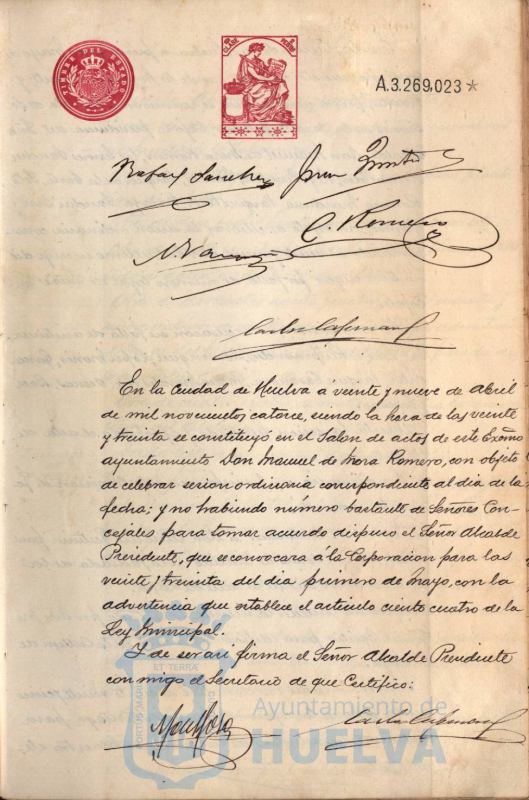 TIMBRE DEL ESTADO
A.3.269,023 *
Rafael Sanchez Juan
C. Romero
En la Ciudad de Huelva a veinte y nueve de Abril
de mil novecientos catorce, siendo la hora de las veinte
y treinta se constituyó en el Salon de actos de este Exc̃mo
ayuntamiento Don Manuel de Mora Romero, con objeto
de celebrar sesion ordinaria correspondiente al dia de la
fecha; y no habiendo número bastante de Señores Con-
cejales para tomar acuerdo dispuso el Señor Alcalde
Presidente, que se convocara á la Corporacion para las
veinte y treinta del dia primero de Mayo, con la
advertencia que establece el articulo ciento cuatro de la
Ley Municipal.
Y de ser asi firma el Señor Alcalde Presidente
con migo el Secretario de que Certifico:
PORTUS MARIS ET TERRÆ
Ayuntamiento de
HUELVA